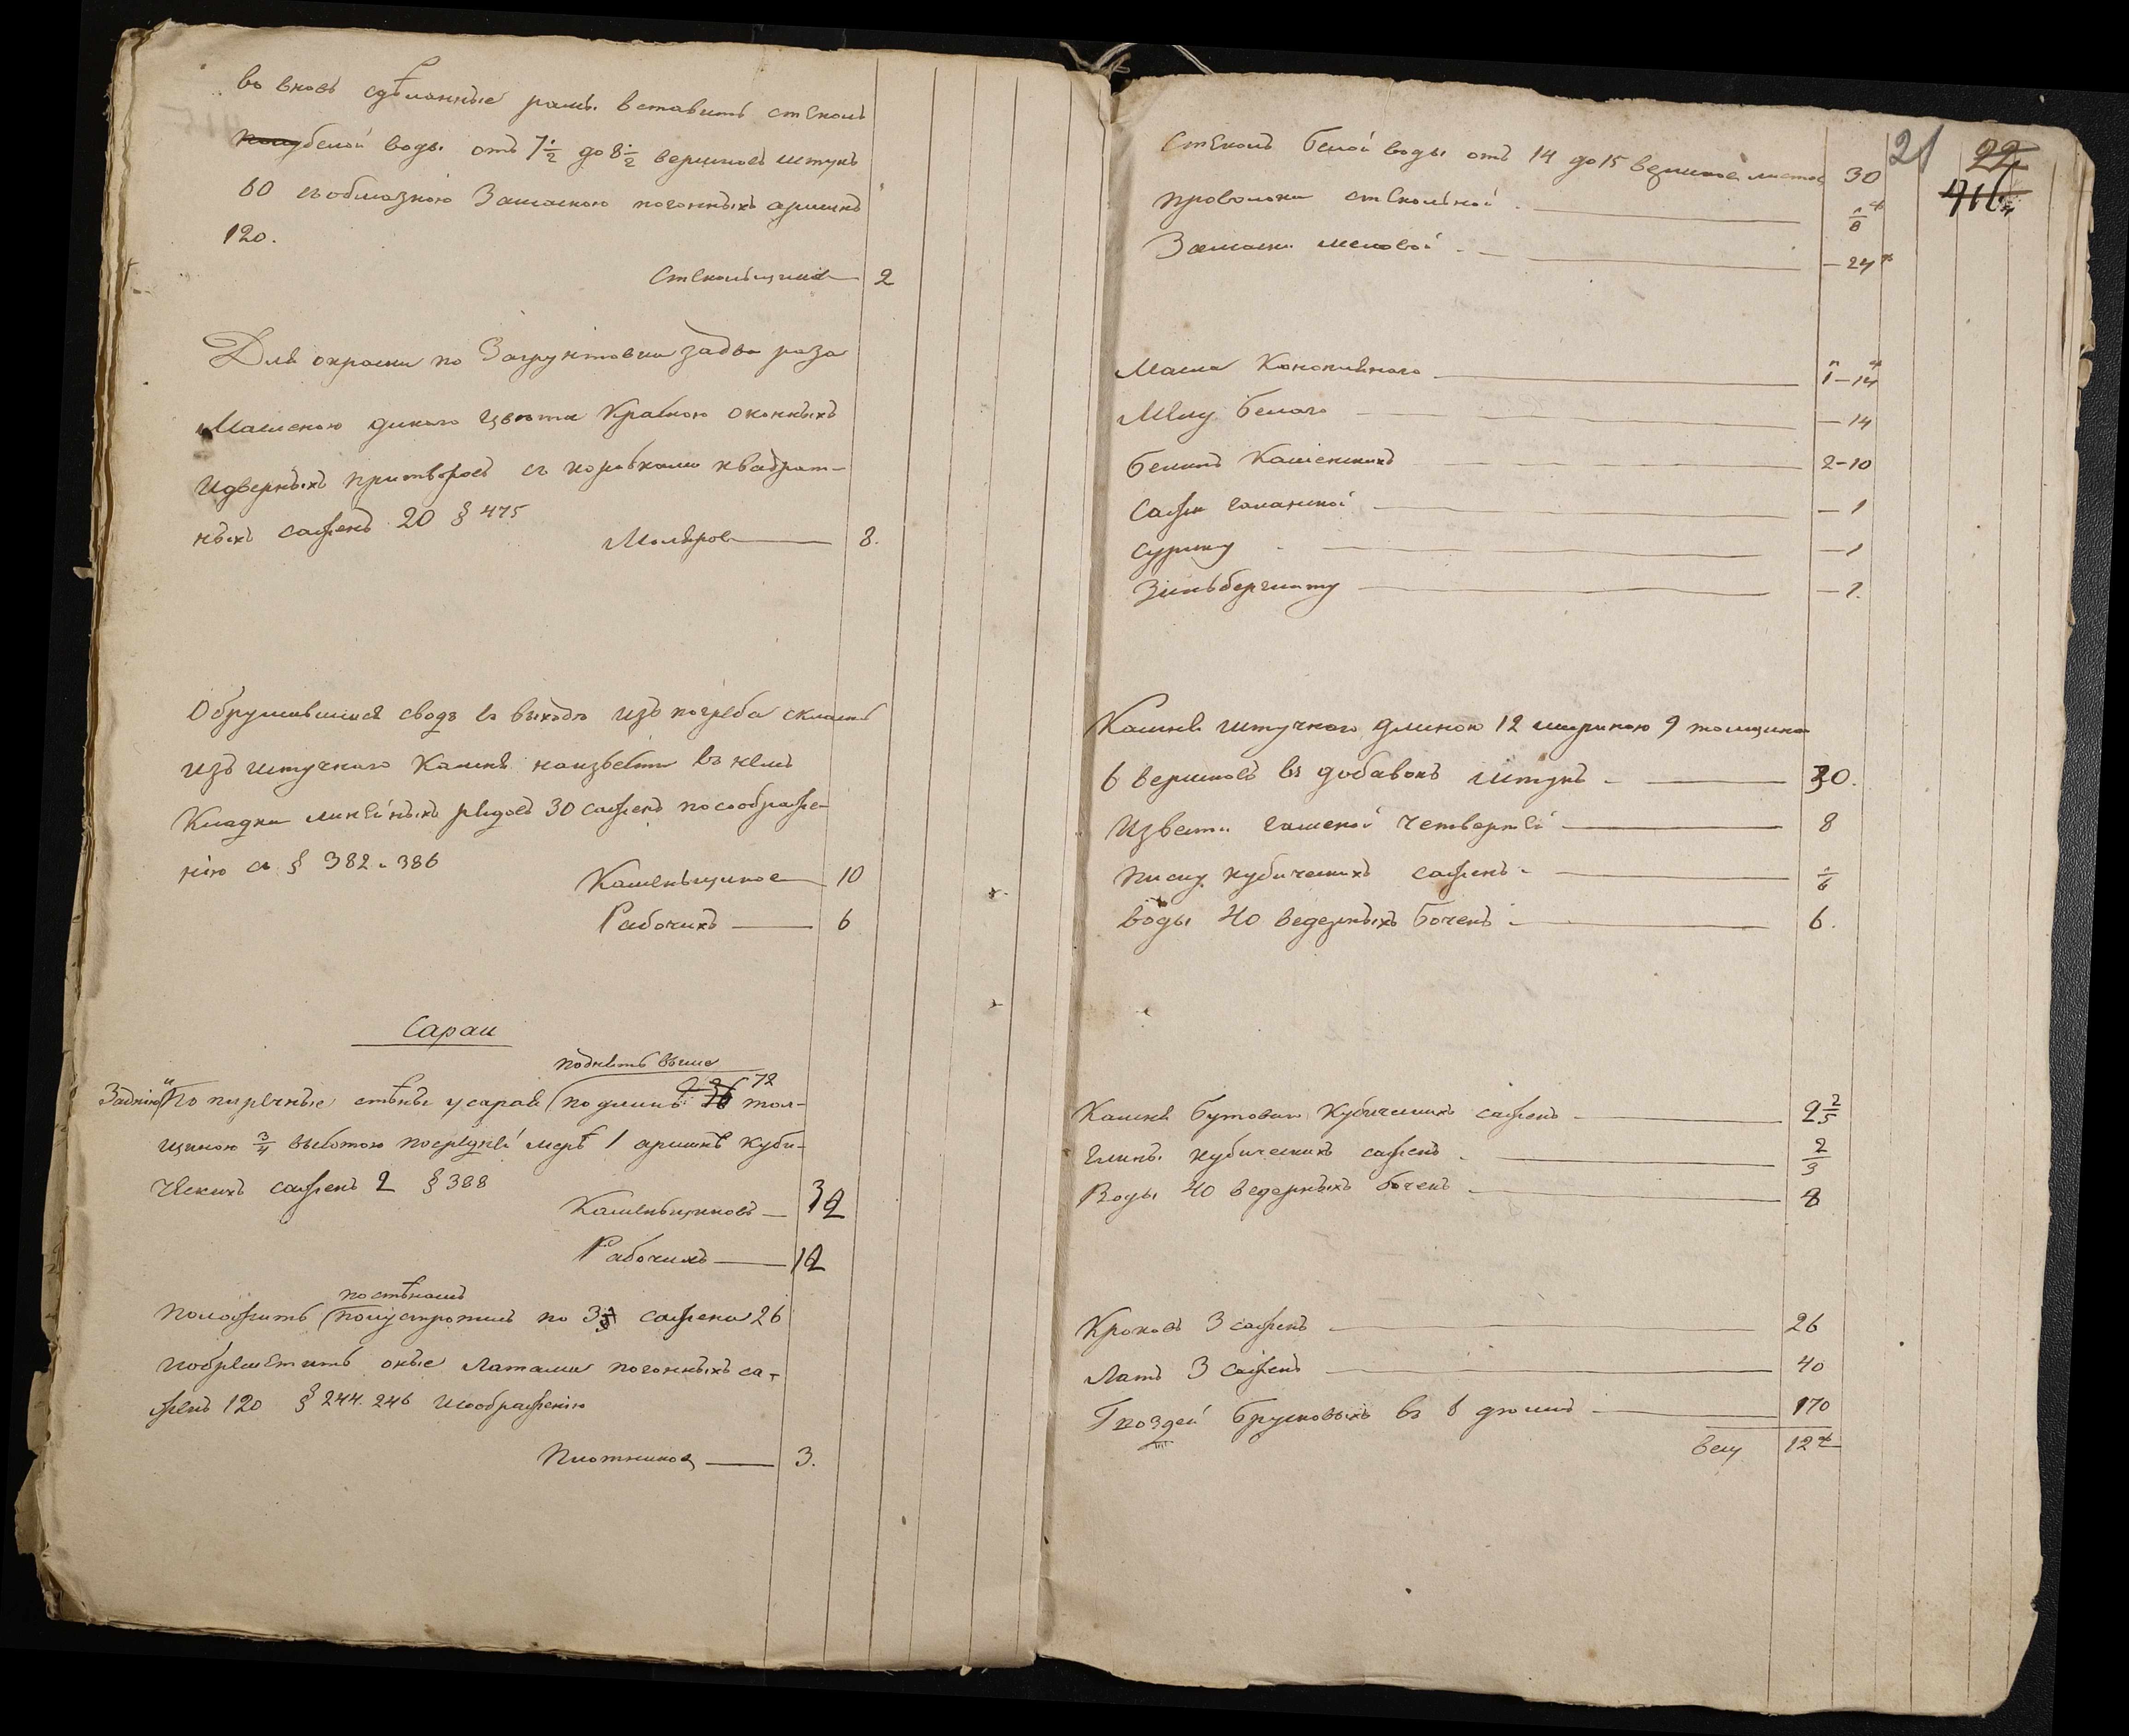 въ вновь сдѣланные рамы вставить стеколъ
полубелой воды отъ 7 1/2 до 8 1/2 вершковъ штукъ
60 съ обмазкою Замаскою погонныхъ аршинъ
120.
Стекольщика 2
Для окраски по Загрунтовки за два раза
Масленою дикаго цвѣта Краскою оконныхъ
и дверныхъ притворовъ съ коробками квадрат-
ныхъ сажень 20 § 475
Маляров 8.
Обрушившися сводъ въ выходѣ изъ погреба скласть
изъ штучнаго Камня на извѣсти въ немъ
Кладки линейныхъ рядовъ 30 сажень по соображе-
нію съ § 382 и 386
Каменьщиков 10
Рабочихъ 6
Сараи
поднять выше
Заднюю и По перечные стѣны у сарая по длинѣ 72 тол-
щиною 3/4 высотою посредней мерѣ 1 аршинъ куби-
ческихъ сажень 2 § 388
Каменьщиковъ 32
Рабочихъ 12
по стѣнамъ
положить полустропилъ по 3 сажени 26
и обрешетить оные латами погонныхъ са-
жень 120 § 244. 246 и соображенію
Плотников 3.
21 22
416
Стеколъ белой воды от 14 до 15 вершков листов 30
проволоки стекольной 1/8
Замаски меловой — 24
Масла Конопляного 1 — 14
Мелу белаго — 14
белилъ Каменныхъ 2 — 10
Сажи голанской — 1
Сурику — 1
Зильберглиту — 1.
Камня штучнаго длиною 12 шириною 9 толщиною
6 вершковъ въ добавокъ штукъ 30.
Извести гашеной четвертей 8
песку кубическихъ сажень 1/6
воды 40 ведерныхъ бочекъ 6.
Камня бутоваго Кубическихъ сажень 2 2/5
Глины кубическихъ сажень 2/3
Воды 40 ведерныхъ бочекъ 8
Кроковъ 3 сажень 26
Латъ 3 сажень 40
Гвоздей брусковыхъ въ 6 дюймъ 170
весу 12